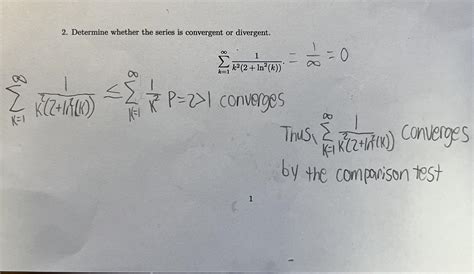 2. Determine whether the series is convergent or divergent.
∞
∑ 1/(k²(2+ln²(k))) = 1/∞ = 0
k=1
∞ ∞
∑ 1/(k²(2+ln²(k))) ≤ ∑ 1/k² P=2>1 converges
k=1 k=1
∞
Thus, ∑ 1/(k²(2+ln²(k))) converges
k=1
by the comparison test
1